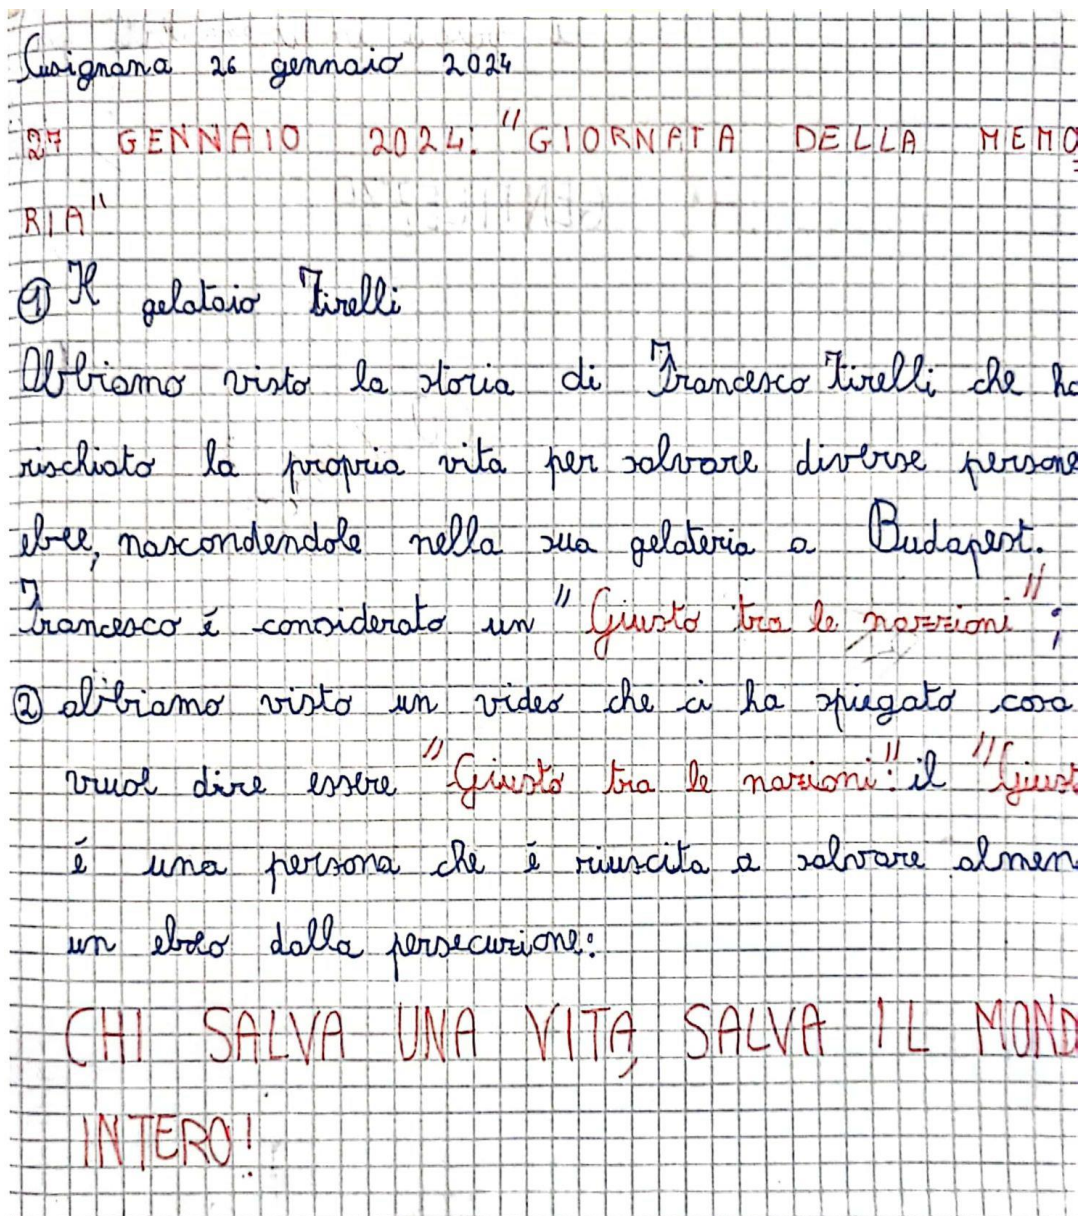 Cusignana 26 gennaio 2024
27 GENNAIO 2024: "GIORNATA DELLA MEMO
RIA"
① Il gelataio Tirelli
Abbiamo visto la storia di Francesco Tirelli che ha
rischiato la propria vita per salvare diverse persone
ebree, nascondendole nella sua gelateria a Budapest.
Francesco é considerato un "Giusto tra le nazzioni";
② abbiamo visto un video che ci ha spiegato cosa
vuol dire essere "Giusto tra le nazioni": il "Giust
é una persona che é riuscita a salvare almen
un ebreo dalla persecuzione:
CHI SALVA UNA VITA, SALVA IL MOND
INTERO!